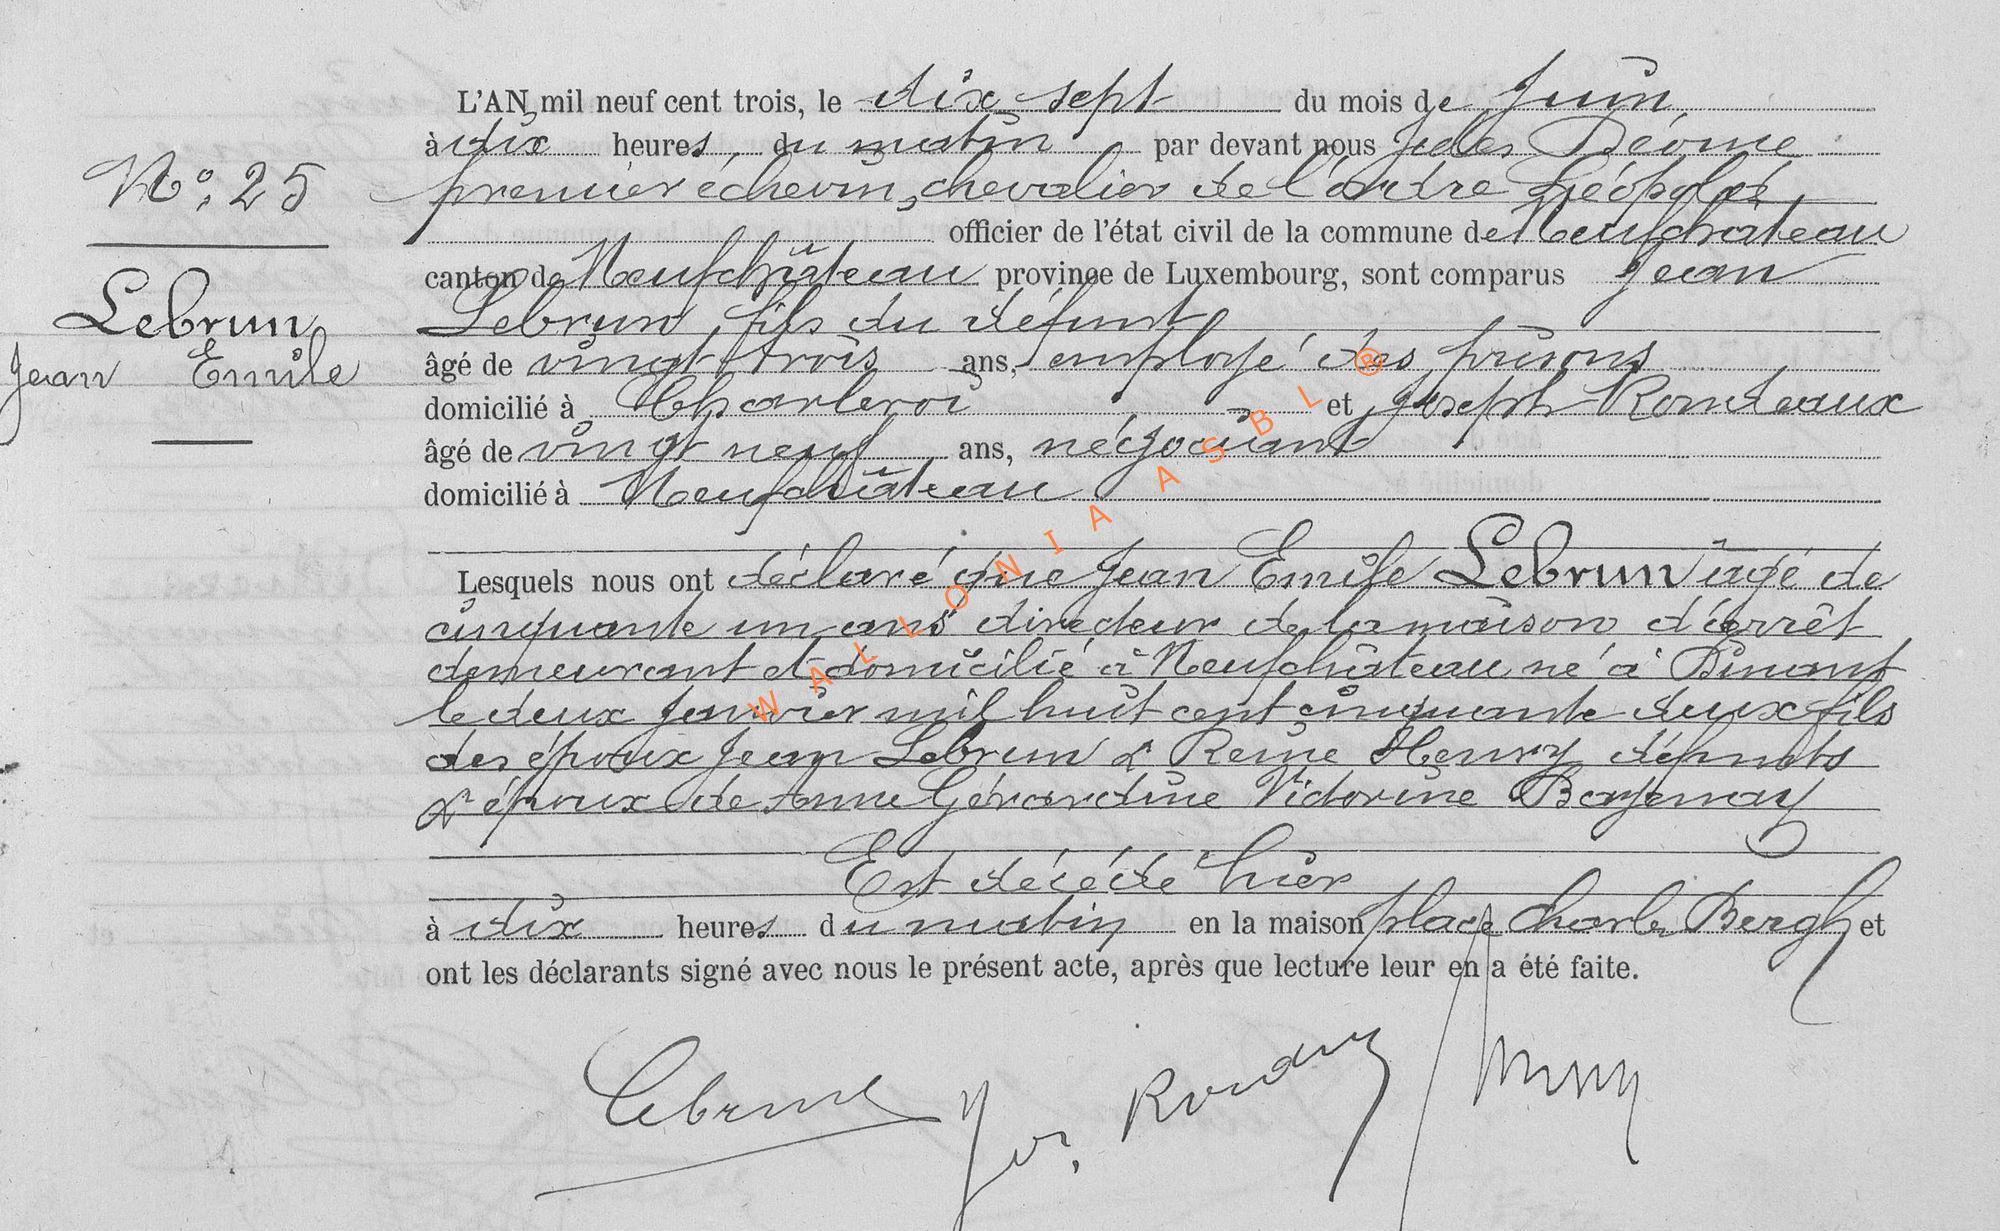 N°: 25
Lebrun
Jean Emile
L'AN mil neuf cent trois, le dix sept du mois de Juin
à dix heures du matin par devant nous Jules
premier échevin, chevalier de l'ordre Léopold
officier de l'état civil de la commune de Neufchâteau
canton de Neufchâteau province de Luxembourg, sont comparus Jean
Lebrun, fils du défunt
âgé de vingt trois ans, employé des prisons
domicilié à Charleroi et Joseph Rondeaux
âgé de vingt neuf ans, négociant
domicilié à Neufchâteau
Lesquels nous ont déclaré que Jean Emile Lebrun âgé de
cinquante un ans directeur de la maison d'arrêt
demeurant et domicilié à Neufchâteau né à Dinant
le deux janvier mil huit cent cinquante deux fils
des époux Jean Lebrun & Reine Henry défunts
& époux de Anne Gérardine Victorine
Est décédé hier
à dix heures du matin en la maison place Charles Bergh et
ont les déclarants signé avec nous le présent acte, après que lecture leur en a été faite.
Lebrun Jos. Rondeaux
WALLONIA ASBL ®